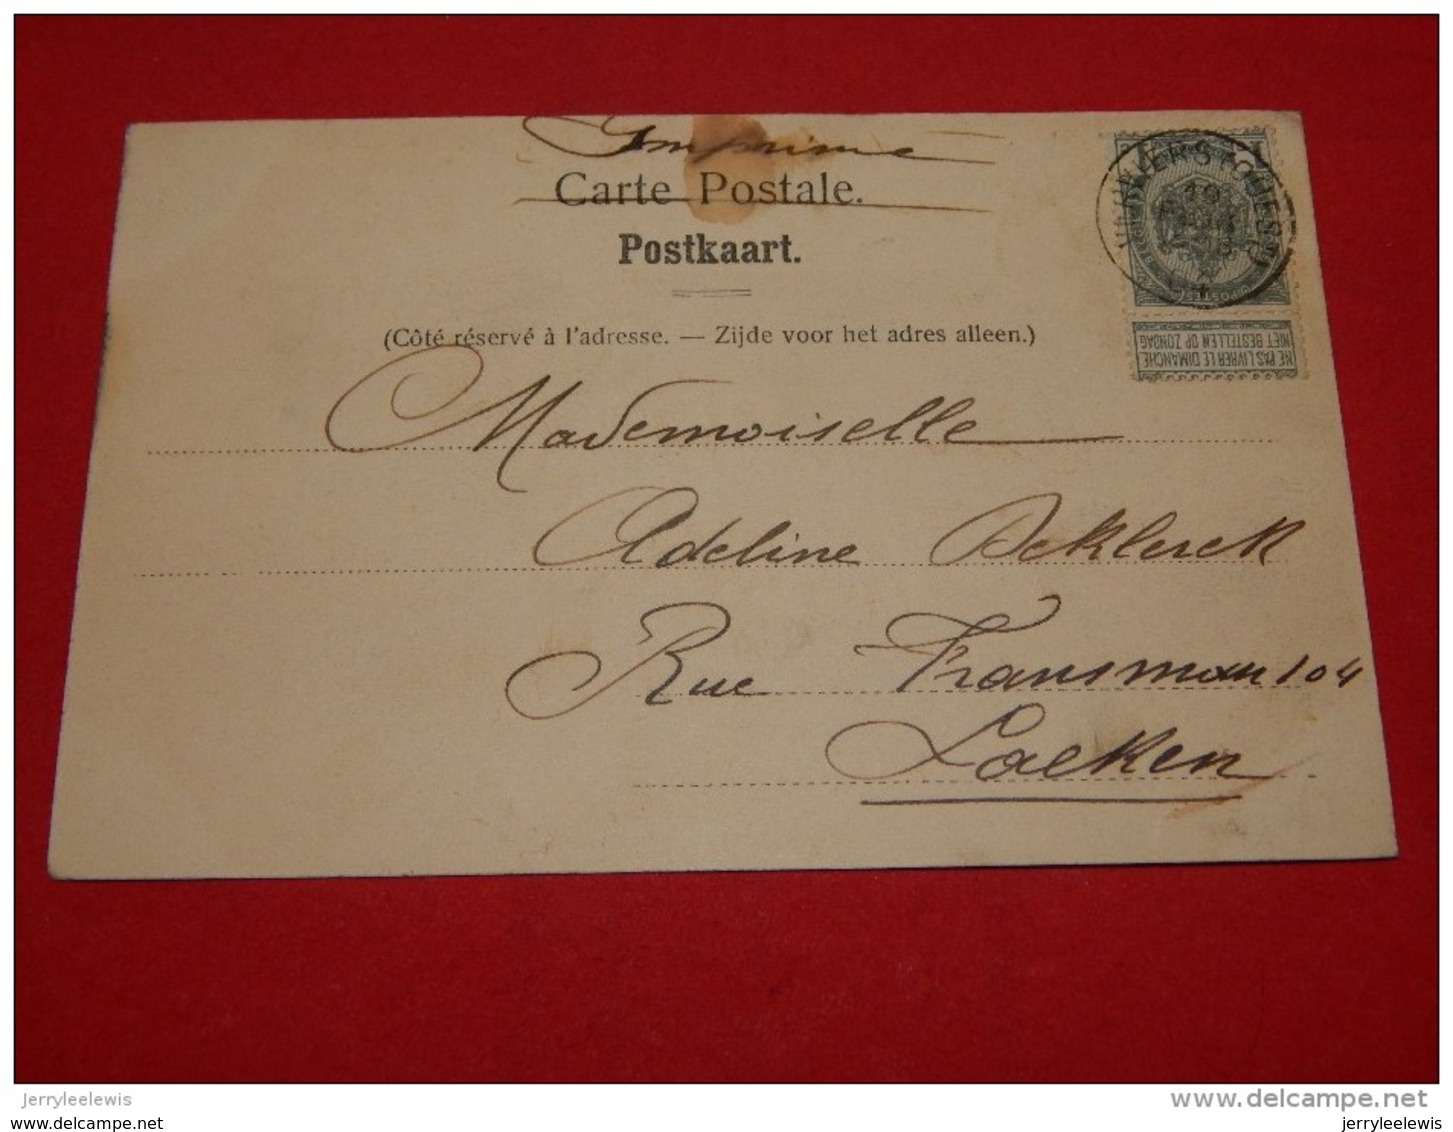 Imprimé
Carte Postale.
Postkaart.
(Côté réservé à l'adresse. — Zijde voor het adres alleen.)
POSTES
NE PAS LIVRER LE DIMANCHE
NIET BESTELLEN OP ZONDAG
Mademoiselle
Adeline Deklerck
Rue Fransman 104
Laeken
jerryleelewis
www.delcampe.net
www.delcampe.net
jerryleelewis